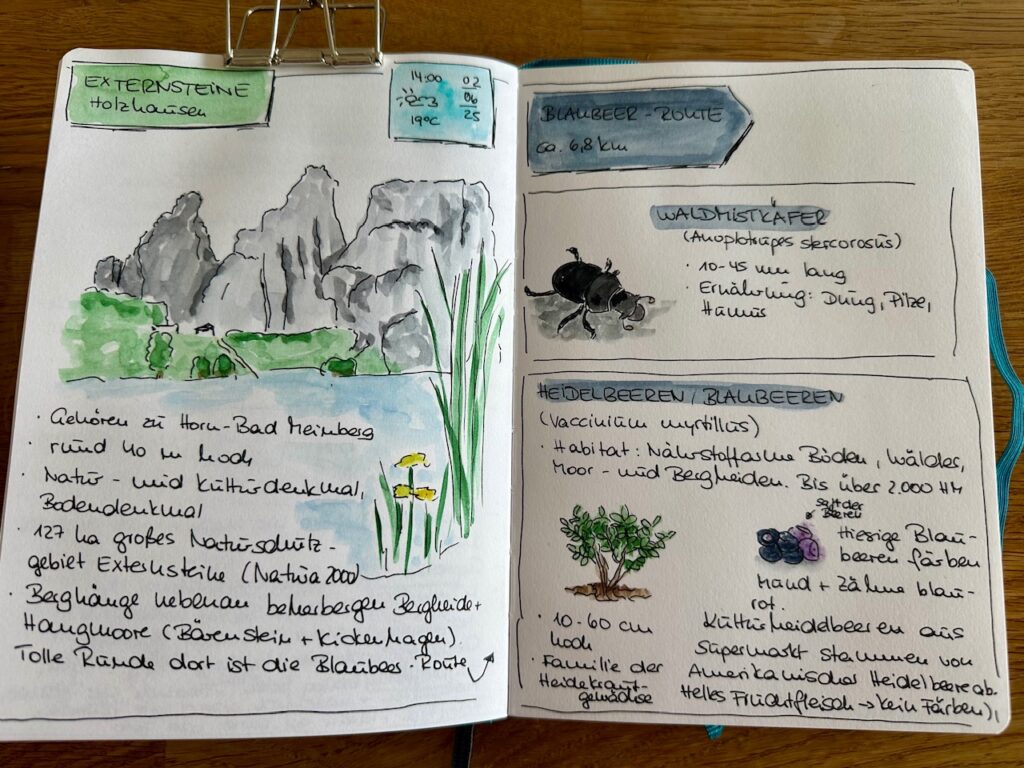 EXTERNSTEINE
Holzhausen
14:00
19°C
02
06
25
· Gehören zu Horn-Bad Meinberg
· rund 40 m hoch
· Natur- und Kulturdenkmal,
Bodendenkmal
· 127 ha großes Naturschutz-
gebiet Externsteine (Natura 2000)
· Berghänge nebenan beherbergen Bergheide +
Hangmoore (Bärenstein + Knickenhagen).
Tolle Runde dort ist die Blaubeer-Route
BLAUBEER-ROUTE
ca. 6,8 km
WALDMISTKÄFER
(Anoplotrupes stercorosus)
· 10-45 mm lang
· Ernährung: Dung, Pilze,
Humus
HEIDELBEEREN/BLAUBEEREN
(Vaccinium myrtillus)
· Habitat: Nährstoffarme Böden, Wälder,
Moor- und Bergheiden. Bis über 2.000 HM
Saft der
Beeren
Hiesige Blau-
beeren färben
Mund + Zähne blau-
rot.
· 10-60 cm
hoch
· Familie der
Heidekraut-
gewächse
Kulturheidelbeeren aus
Supermarkt stammen von
Amerikanischer Heidelbeere ab.
Helles Fruchtfleisch → kein Färben),